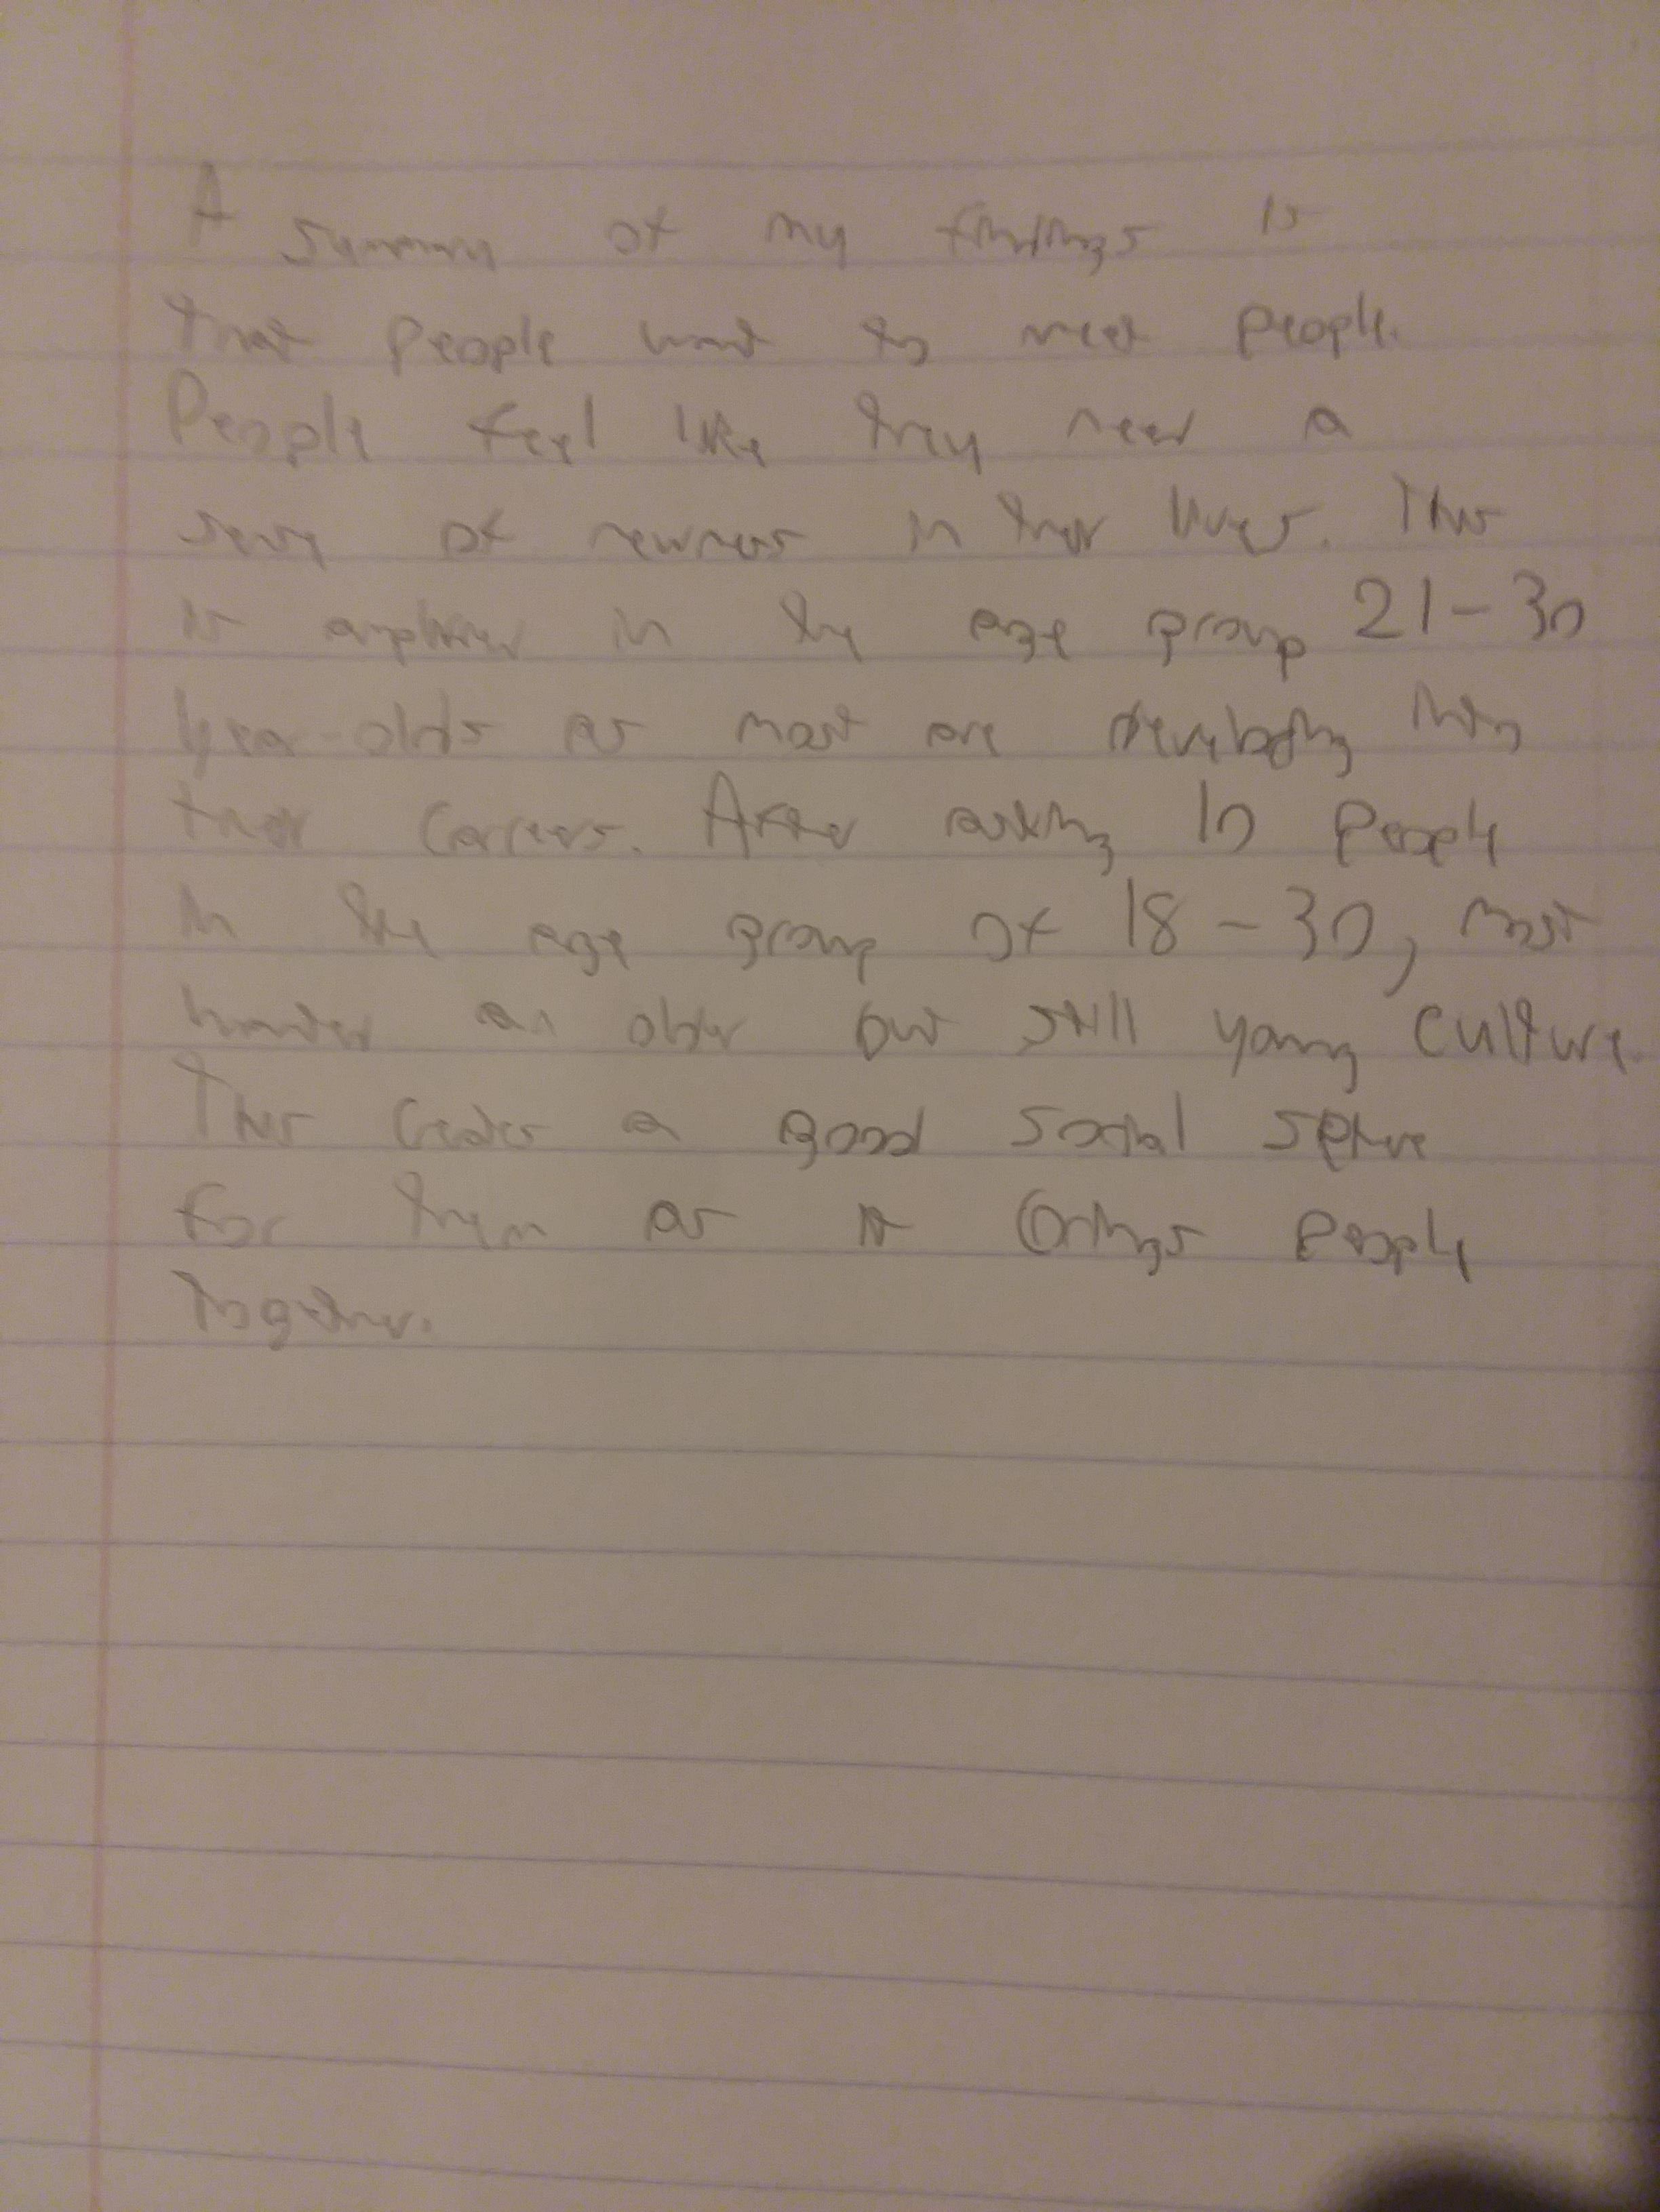 A summary of my findings is
that people want to meet people.
People feel like they need a
sense of newness in their lives. This
is amplified in the age group 21-30
year-olds as most are developing into
their careers. After asking 10 people
in the age group of 18-30, most
wanted an older but still young culture.
This creates a good social
for them as it brings people
together.